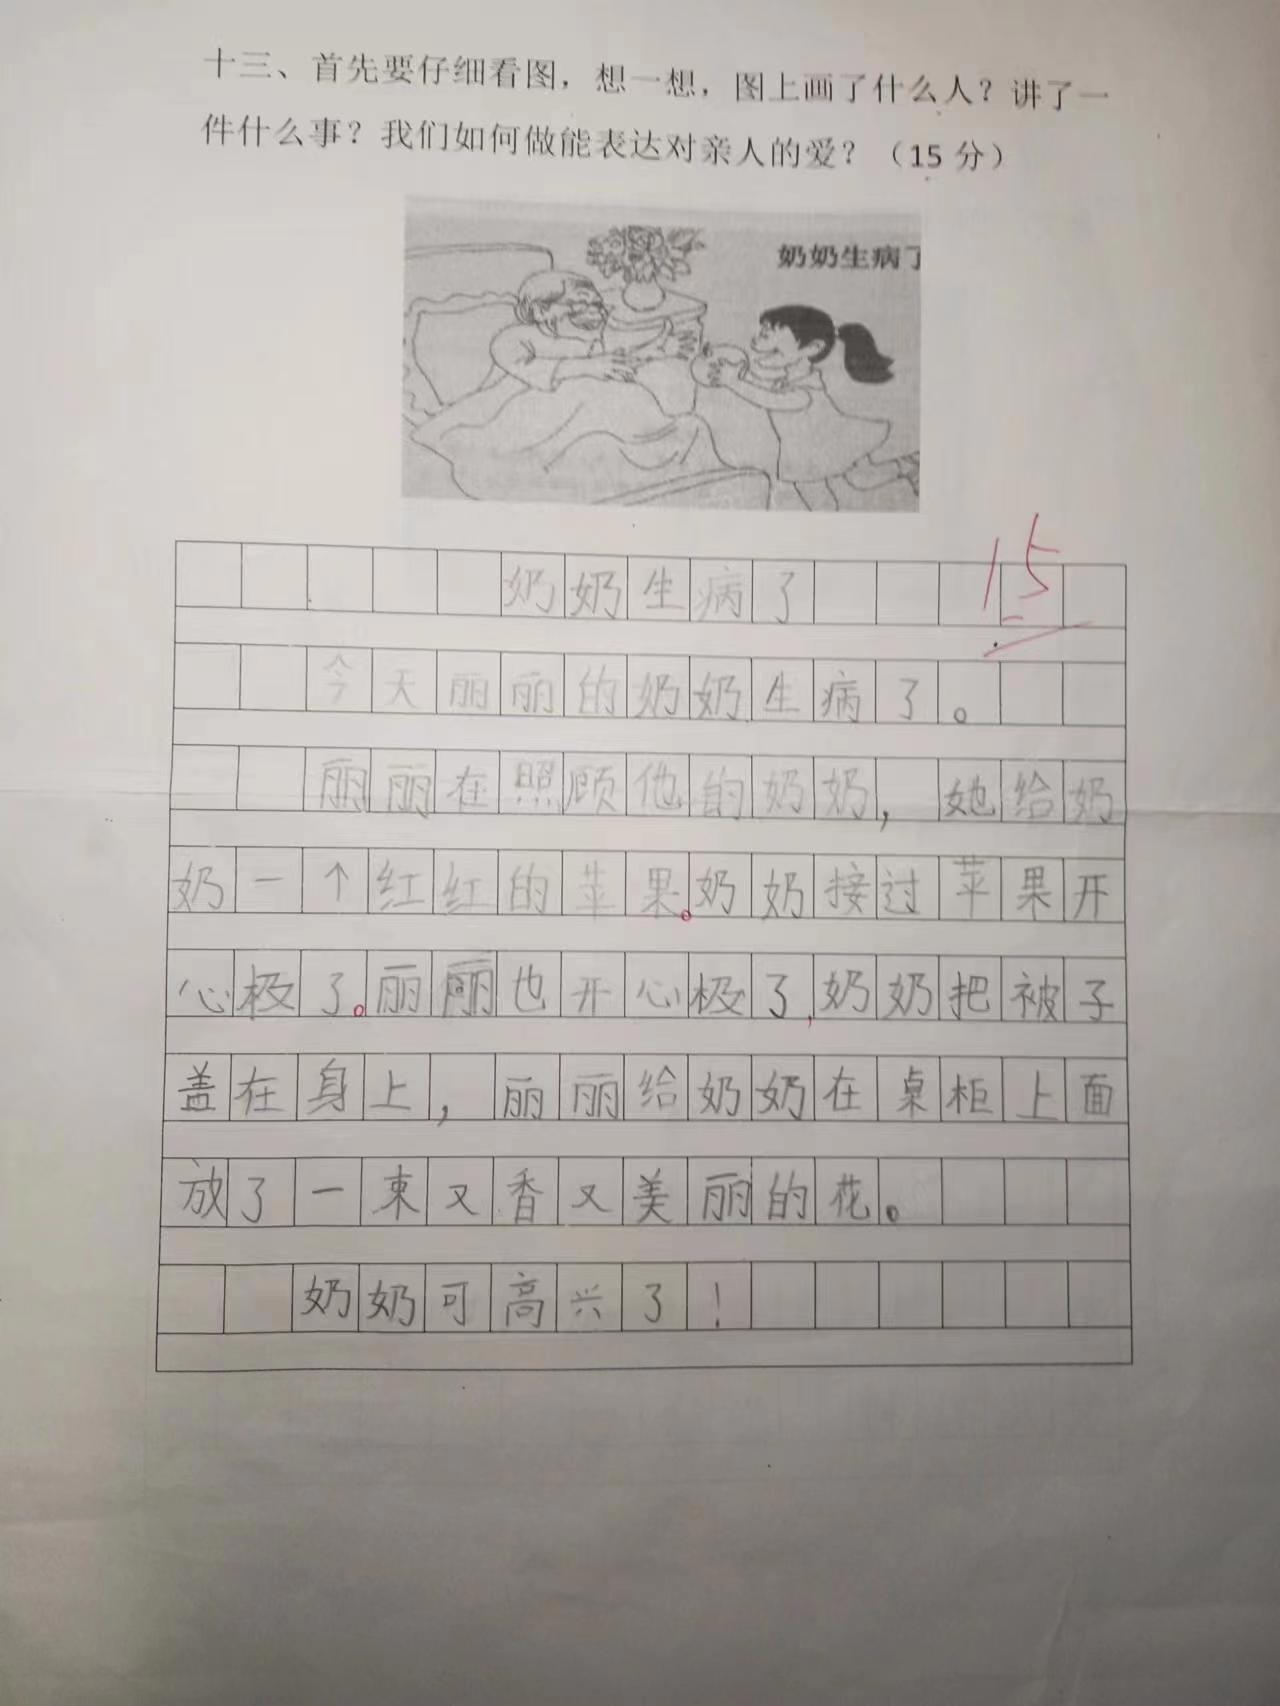 十三、首先要仔细看图，想一想，图上画了什么人？讲了一
件什么事？我们如何做能表达对亲人的爱？（15 分）
奶奶生病了
15
奶奶生病了
今天丽丽的奶奶生病了。
丽丽在照顾他的奶奶，她给奶
奶一个红红的苹果。奶奶接过苹果开
心极了。丽丽也开心极了，奶奶把被子
盖在身上，丽丽给奶奶在桌柜上面
放了一束又香又美丽的花。
奶奶可高兴了！